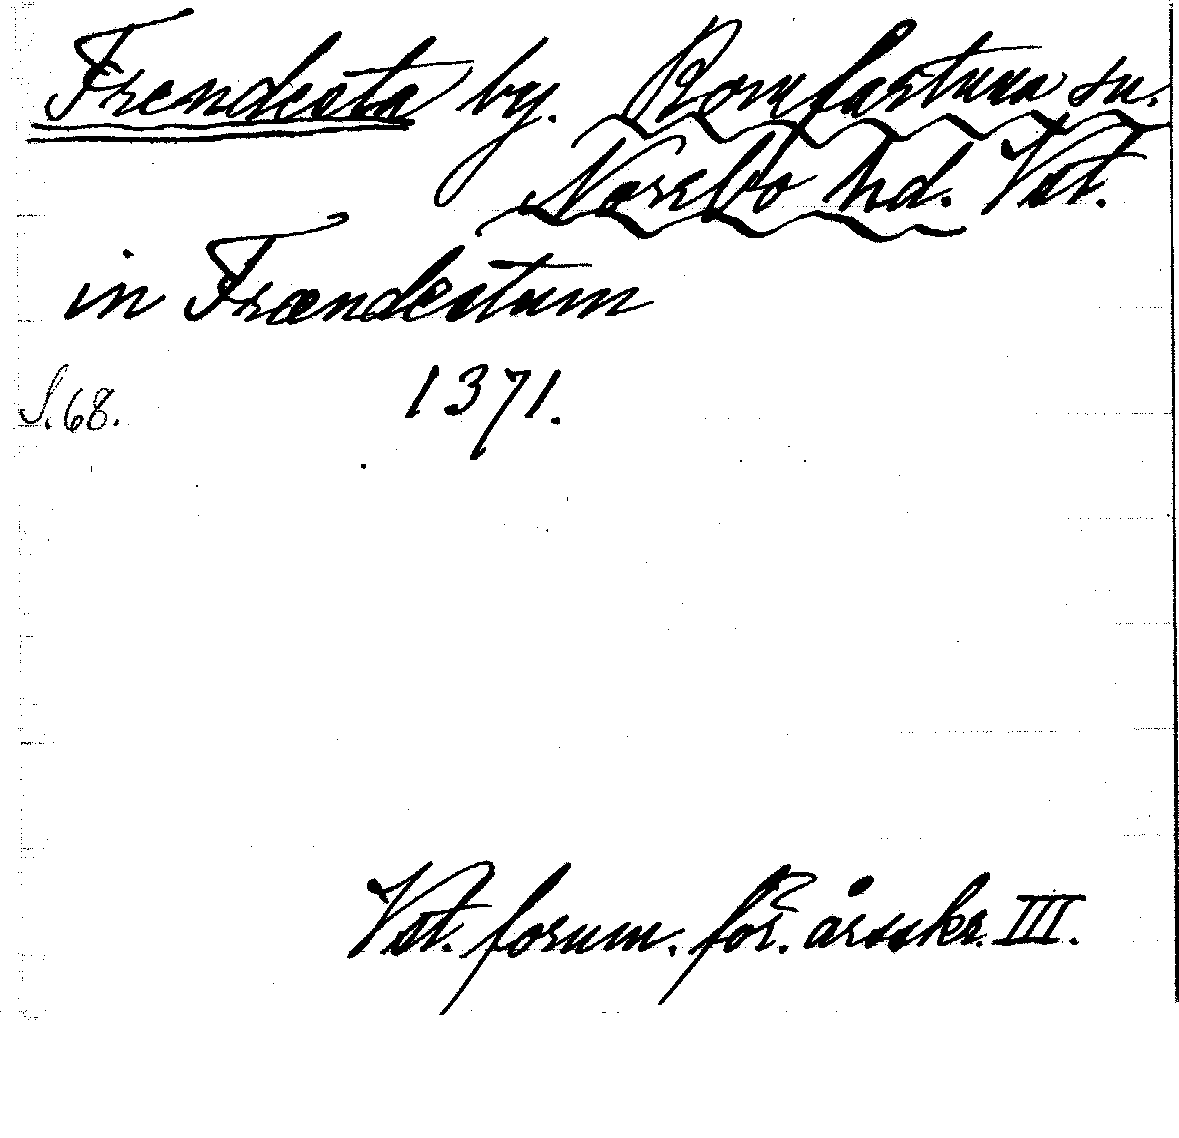 Frendesta by. Romfartuna sn.
Norrbo hd. Vst.
in Frændestum
S. 68. 1371.
Vst. fornm. för. årsskr. III.